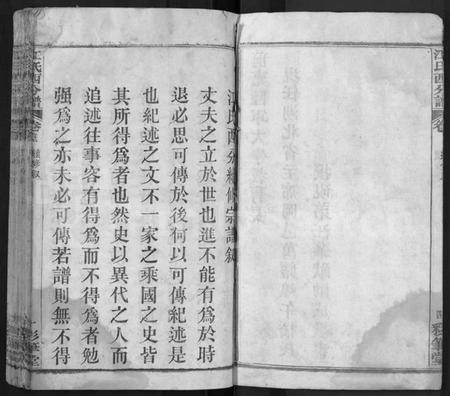 江氏酉分續修宗譜敘
丈夫之立於世也進不能有為於時
退必思可傳於後何以可傳紀述是
也紀述之文不一家之乘國之史皆
其所得為者也然史以異代之人而
追述往事容有得為而不得為者勉
強為之亦未必可傳若譜則無不得
江氏酉分譜
彩筆堂
江氏酉分譜
彩筆堂